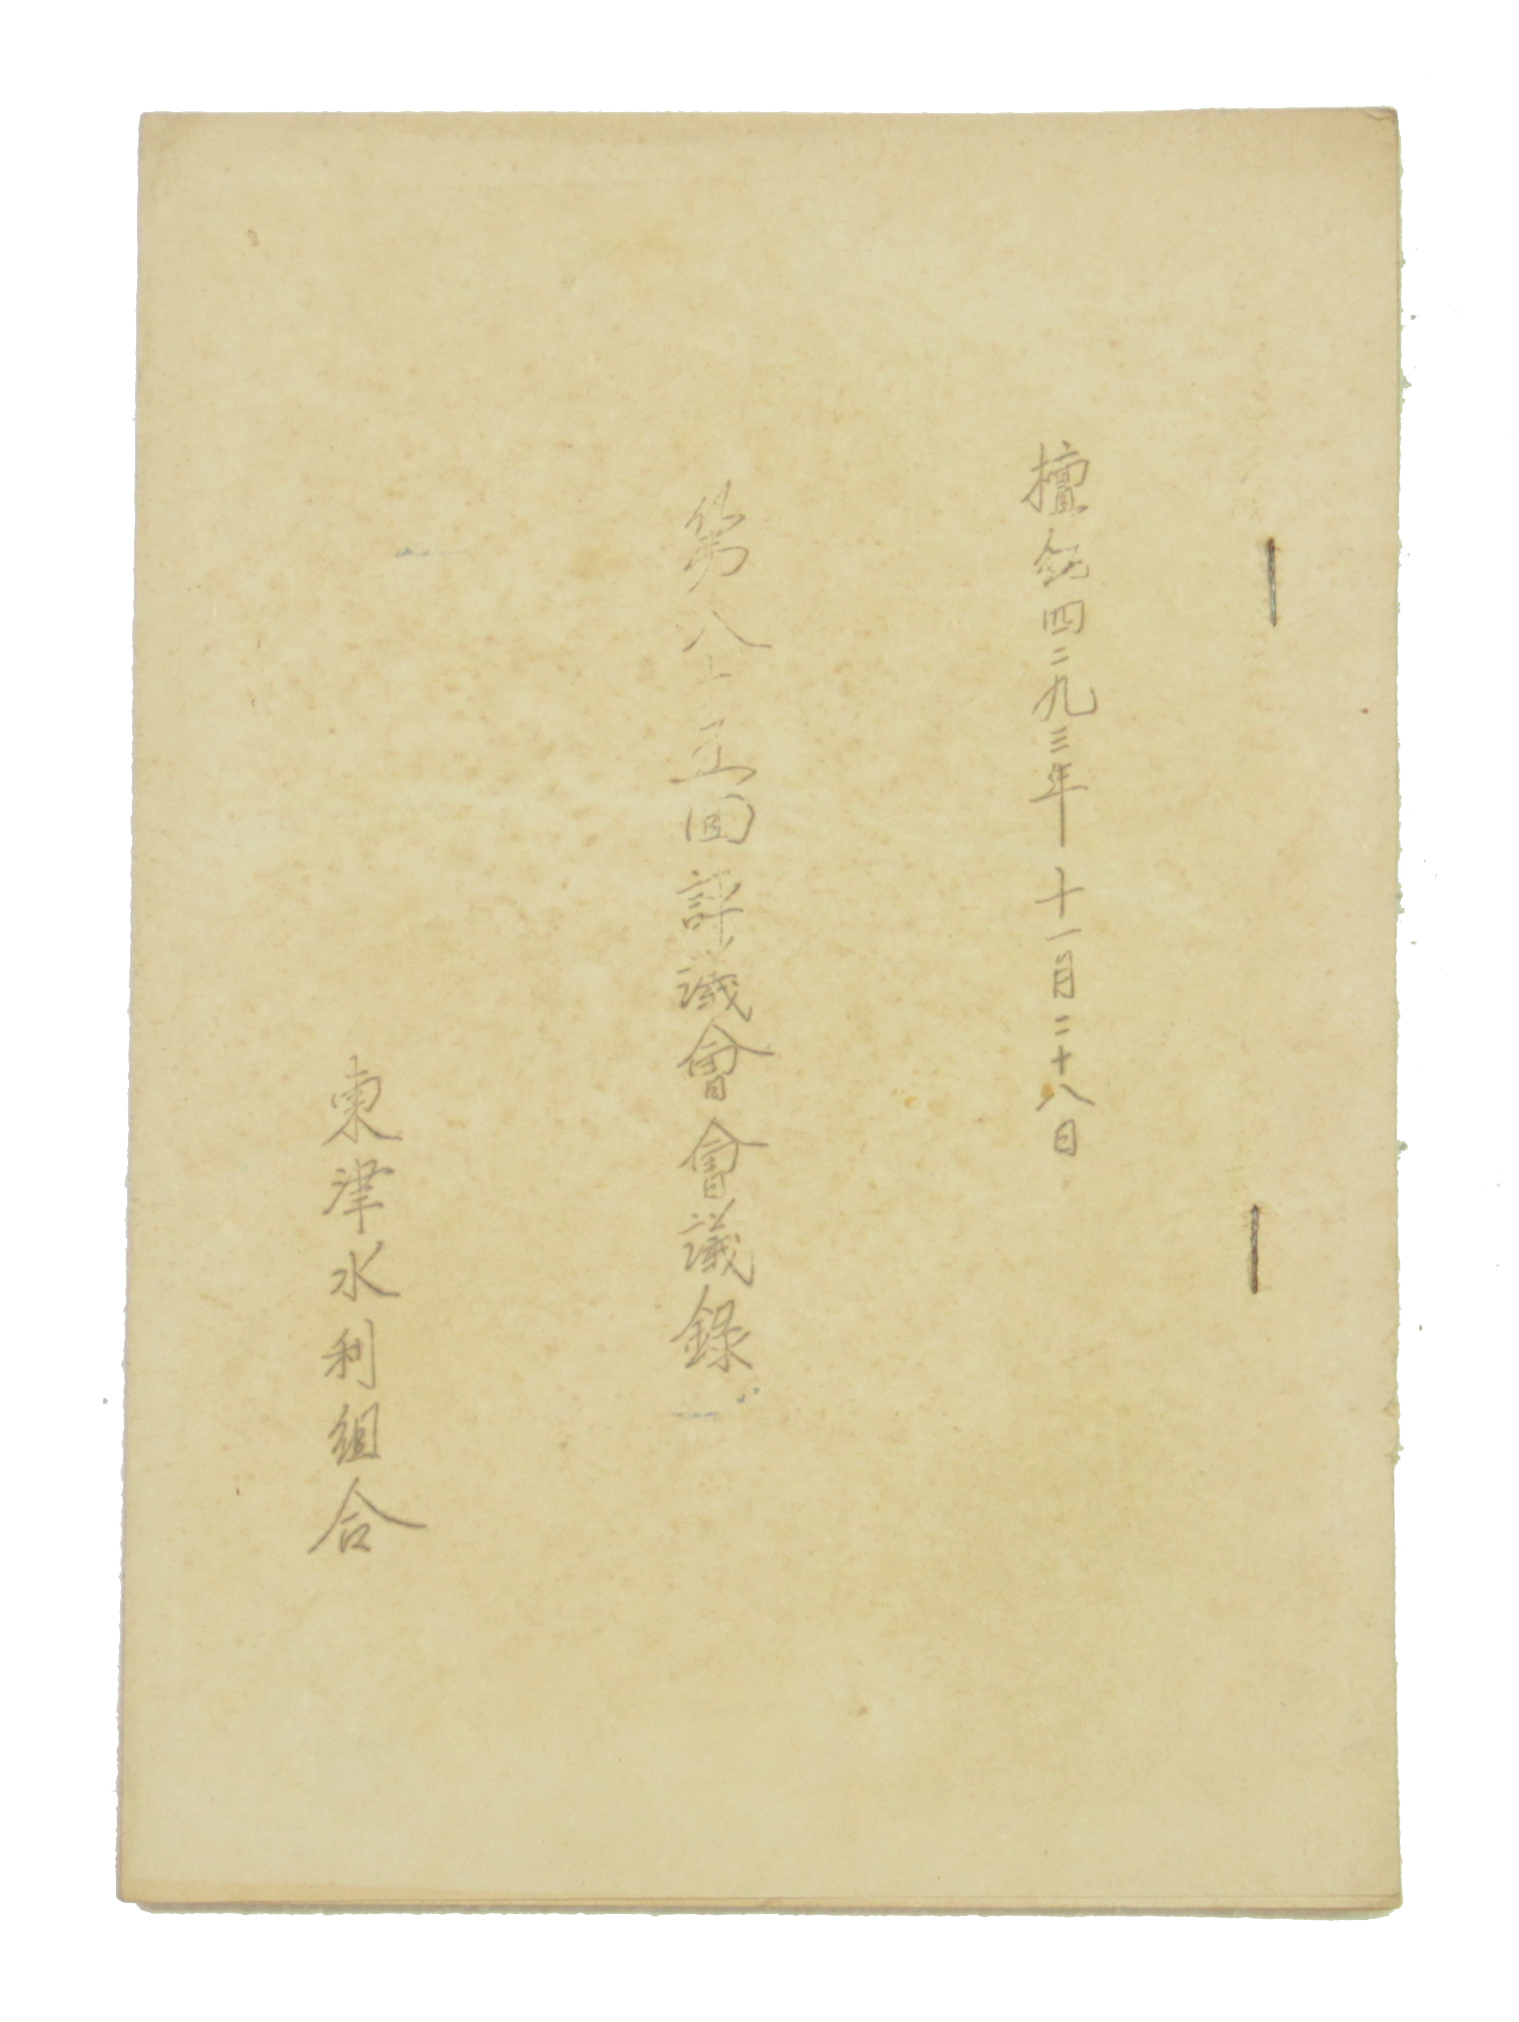 檀紀四二九三年 十一月二十八日
第八十五回評議會會議錄
東津水利組合